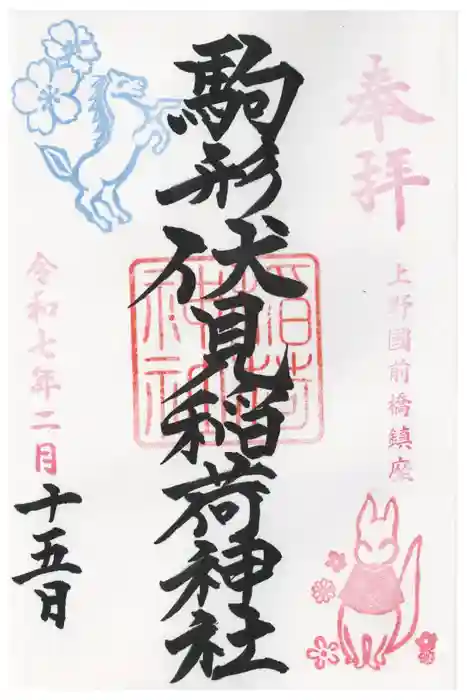 奉拝
上野國前橋鎮座
駒形伏見稲荷神社
令和七年二月十五日